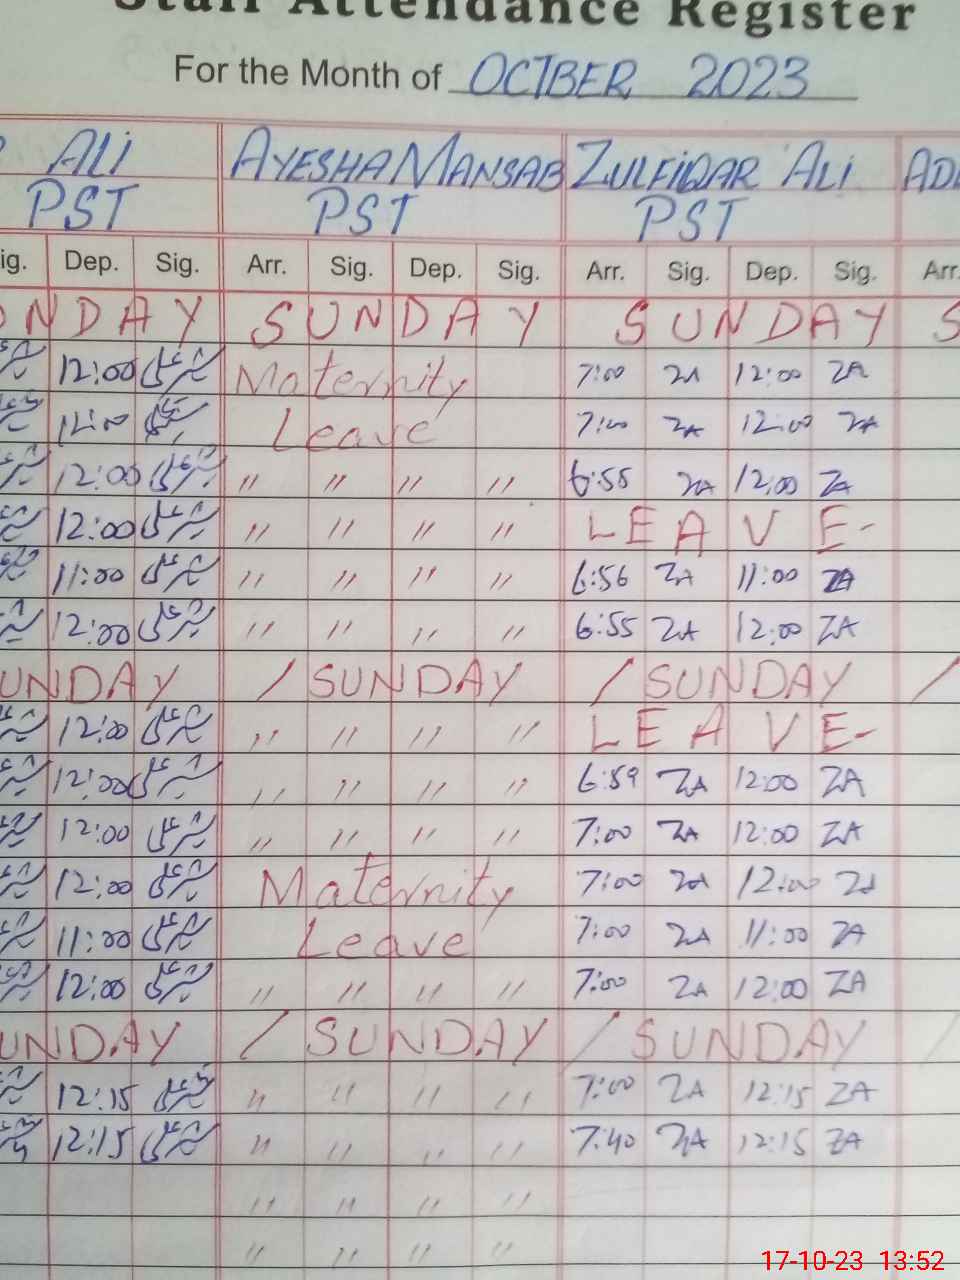 Staff Attendance Register
For the Month of OCTBER 2023
ALI AYESHA MANSAB ZULFIQAR ALI
PST PST PST
Dep. Sig. Arr. Sig. Dep. Sig. Arr. Sig. Dep. Sig. Arr.
SUNDAY SUNDAY
12:00 Maternity 7:00 ZA 12:00 ZA
Leave 7:00 ZA 12:00 ZA
12:00 " " " " 6:55 ZA 12:00 ZA
12:00 " " " " LEAVE-
11:00 " " " " 6:56 ZA 11:00 ZA
12:00 " " " " 6:55 ZA 12:00 ZA
UNDAY / SUNDAY / SUNDAY /
12:00 " " " " LEAVE-
12:00 " " " " 6:59 ZA 12:00 ZA
12:00 " " " " 7:00 ZA 12:00 ZA
12:00 Maternity 7:00 ZA 12:00 ZA
11:00 Leave 7:00 ZA 11:00 ZA
12:00 " " " " 7:00 ZA 12:00 ZA
UNDAY / SUNDAY / SUNDAY /
12:15 " " " " 7:00 ZA 12:15 ZA
12:15 " " " " 7:40 ZA 12:15 ZA
" " " "
" " " "
17-10-23 13:52